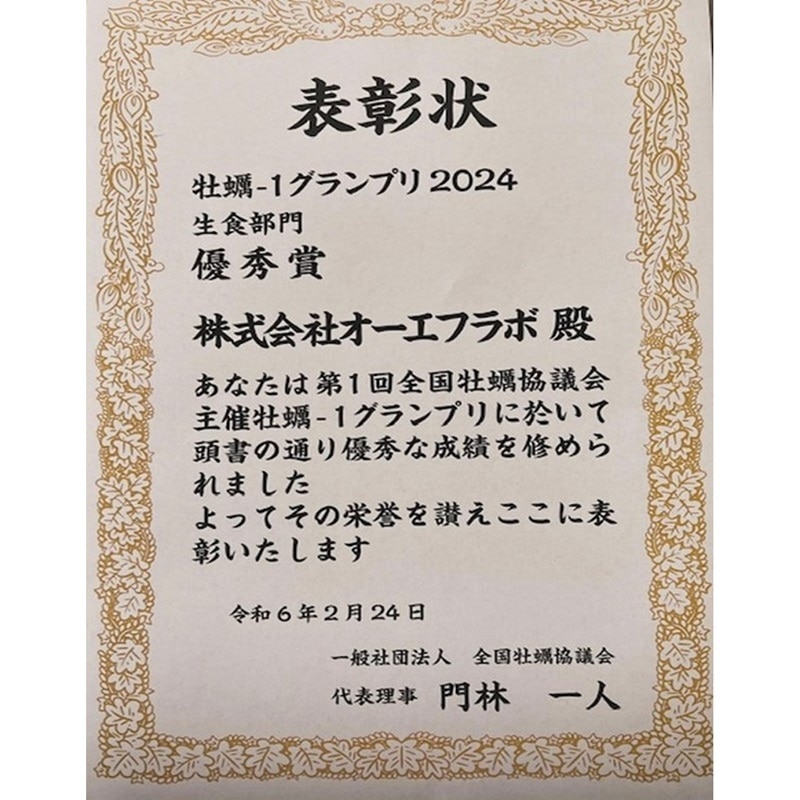 表彰状
牡蠣-1グランプリ2024
生食部門
優秀賞
株式会社オーエフラボ 殿
あなたは第1回全国牡蠣協議会
主催牡蠣-1グランプリに於いて
頭書の通り優秀な成績を修めら
れました
よってその栄誉を讃えここに表
彰いたします
令和6年2月24日
一般社団法人　全国牡蠣協議会
代表理事　門林　一人